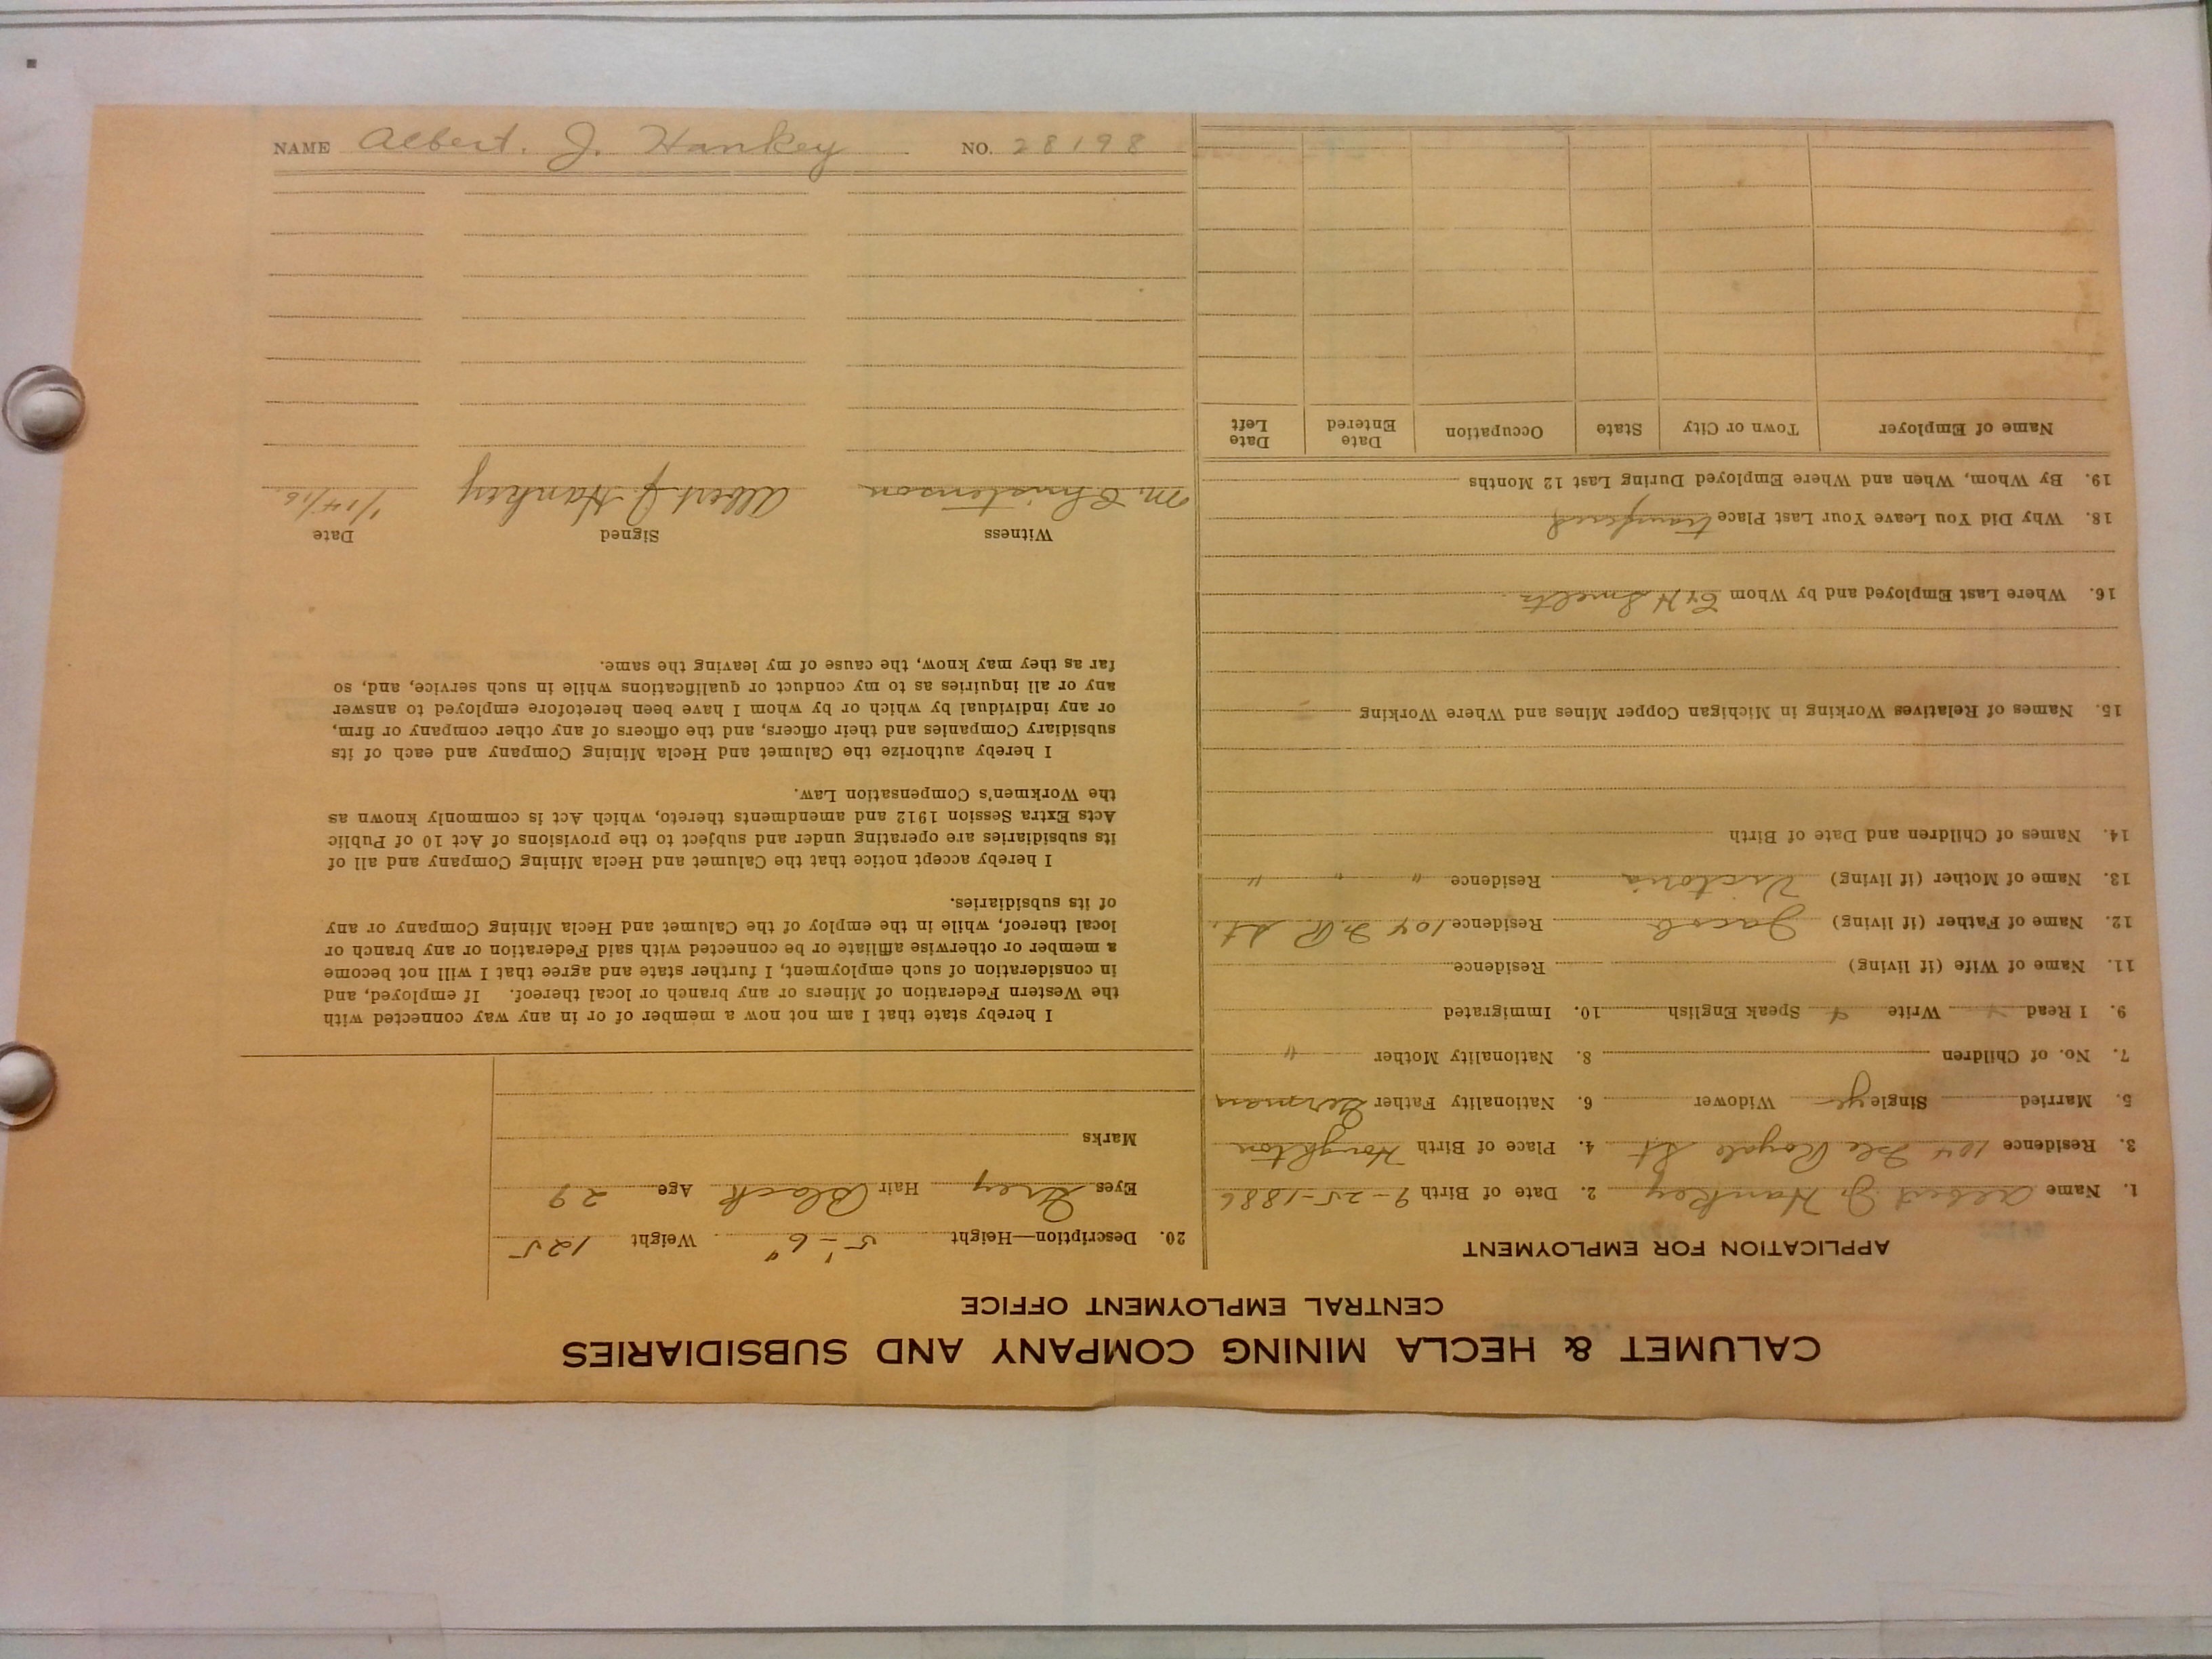 CALUMET & HECLA MINING COMPANY AND SUBSIDIARIES
CENTRAL EMPLOYMENT OFFICE
APPLICATION FOR EMPLOYMENT
1. Name Albert J. Hankey 2. Date of Birth 9-25-1886
3. Residence 104 Isle Royale St 4. Place of Birth Houghton
5. Married Single yes Widower 6. Nationality Father German
7. No. of Children 8. Nationality Mother "
9. I Read Write Speak English 10. Immigrated
11. Name of Wife (if living) Residence
12. Name of Father (if living) Jacob Residence 104 I.R. St.
13. Name of Mother (if living) Victoria Residence " " "
14. Names of Children and Date of Birth
15. Names of Relatives Working in Michigan Copper Mines and Where Working
16. Where Last Employed and by Whom C & H Smeltr
18. Why Did You Leave Your Last Place transfered
19. By Whom, When and Where Employed During Last 12 Months
Name of Employer Town or City State Occupation Date Entered Date Left
20. Description—Height 5'-6" Weight 125
Eyes Grey Hair Black Age 29
Marks
I hereby state that I am not now a member of or in any way connected with
the Western Federation of Miners or any branch or local thereof. If employed, and
in consideration of such employment, I further state and agree that I will not become
a member or otherwise affiliate or be connected with said Federation or any branch or
local thereof, while in the employ of the Calumet and Hecla Mining Company or any
of its subsidiaries.
I hereby accept notice that the Calumet and Hecla Mining Company and all of
its subsidiaries are operating under and subject to the provisions of Act 10 of Public
Acts Extra Session 1912 and amendments thereto, which Act is commonly known as
the Workmen's Compensation Law.
I hereby authorize the Calumet and Hecla Mining Company and each of its
subsidiary Companies and their officers, and the officers of any other company or firm,
or any individual by which or by whom I have been heretofore employed to answer
any or all inquiries as to my conduct or qualifications while in such service, and, so
far as they may know, the cause of my leaving the same.
Witness Signed Date
M. Christenson Albert J. Hankey 1/14/16
NAME Albert. J. Hankey NO. 28198